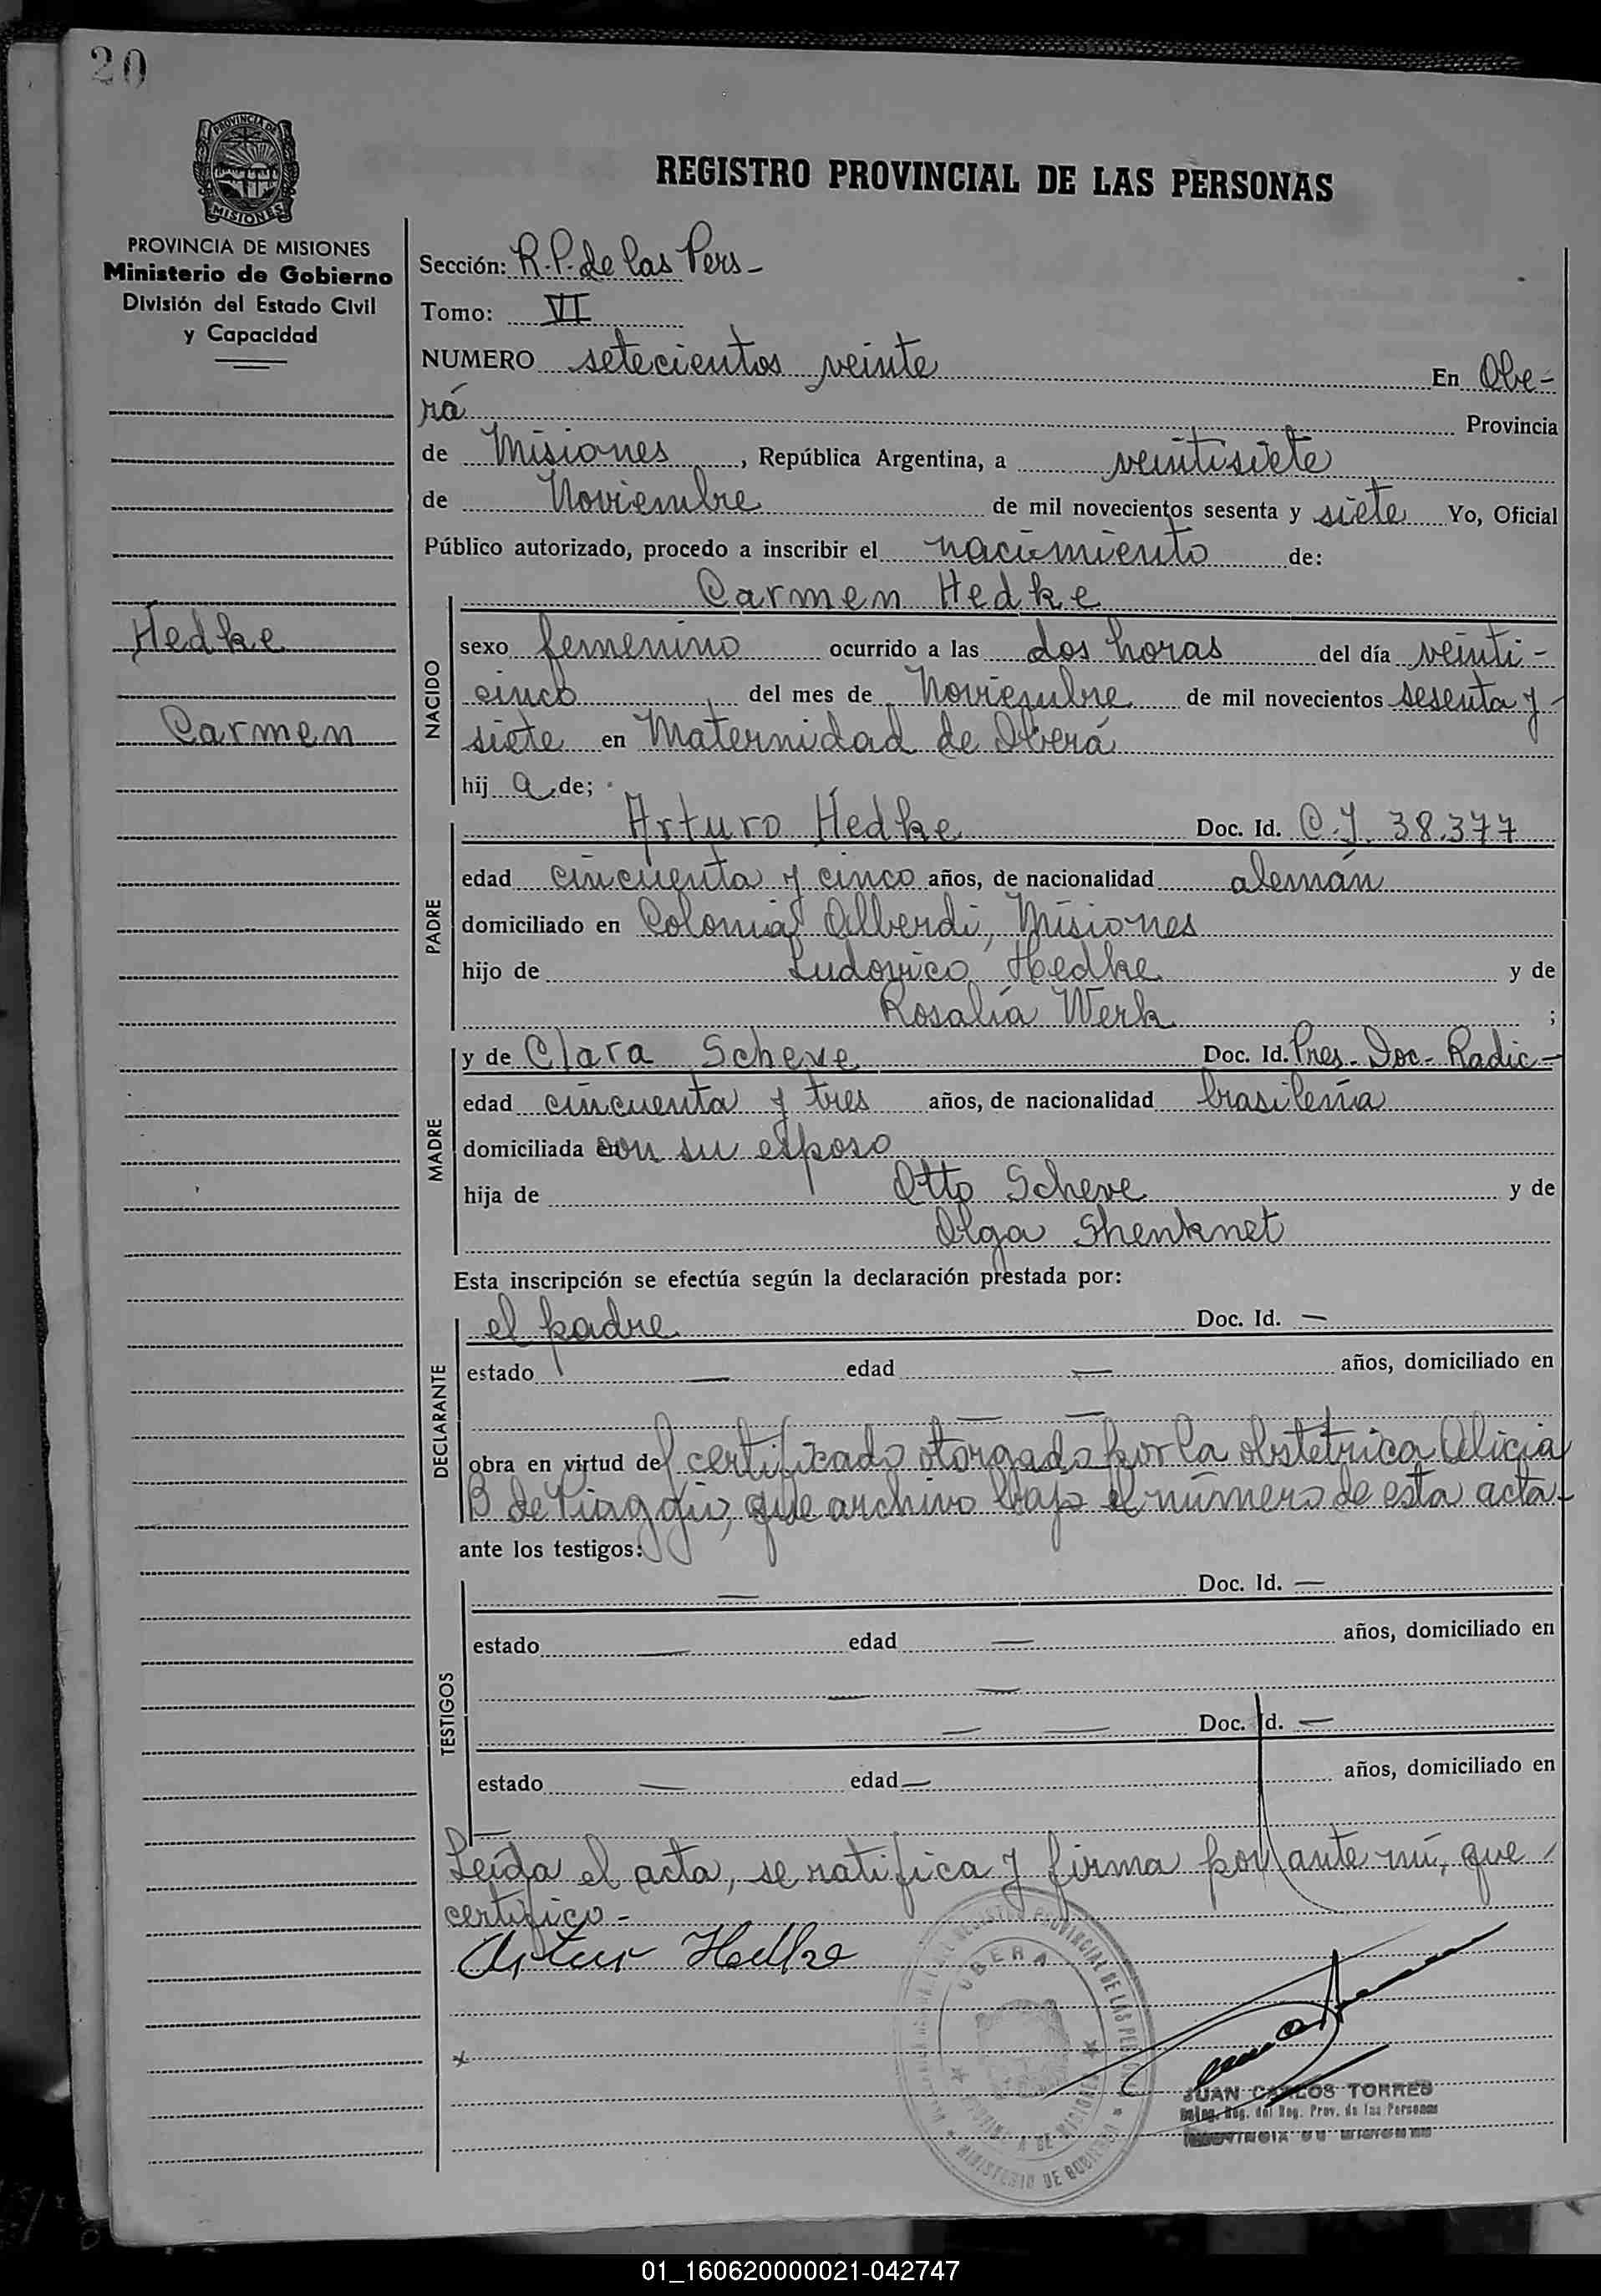 20
PROVINCIA DE
MISIONES
PROVINCIA DE MISIONES
Ministerio de Gobierno
División del Estado Civil
y Capacidad
Hedke
Carmen
REGISTRO PROVINCIAL DE LAS PERSONAS
Sección: R.P. de las Pers-
Tomo: VI
NUMERO setecientos veinte En Obe-
rá Provincia
de Misiones, República Argentina, a veintisiete
de Noviembre de mil novecientos sesenta y siete Yo, Oficial
Público autorizado, procedo a inscribir el nacimiento de:
Carmen Hedke
NACIDO
sexo femenino ocurrido a las dos horas del día veinti-
cinco del mes de Noviembre de mil novecientos sesenta y
siete en Maternidad de Oberá
hij a de;
PADRE
Arturo Hedke Doc. Id. C.I. 38.377
edad cincuenta y cinco años, de nacionalidad alemán
domiciliado en Colonia Alberdi, Misiones
hijo de Ludovico Hedke y de
Rosalía Werk ;
MADRE
y de Clara Scheve Doc. Id. Pres. Doc. Radic-
edad cincuenta y tres años, de nacionalidad brasileña
domiciliada con su esposo
hija de Otto Scheve y de
Olga Shenknet
Esta inscripción se efectúa según la declaración prestada por:
DECLARANTE
el padre Doc. Id. —
estado — edad — años, domiciliado en
— —
obra en virtud del certificado otorgado por la obstetrica Alicia
B de Piaggio, que archivo bajo el número de esta acta-
ante los testigos:
TESTIGOS
— Doc. Id. —
estado — edad — años, domiciliado en
— —
— — Doc. Id. —
estado — edad — años, domiciliado en
—
Leída el acta, se ratifica y firma por ante mí, que
certifico-
Artur Hedke
OBERA
REGISTRO PROVINCIAL DE LAS PERSONAS
PROVINCIA DE MISIONES
MINISTERIO DE GOBIERNO
JUAN CARLOS TORRES
Deleg. Reg. del Reg. Prov. de las Personas
PROVINCIA DE MISIONES
01_160620000021-042747